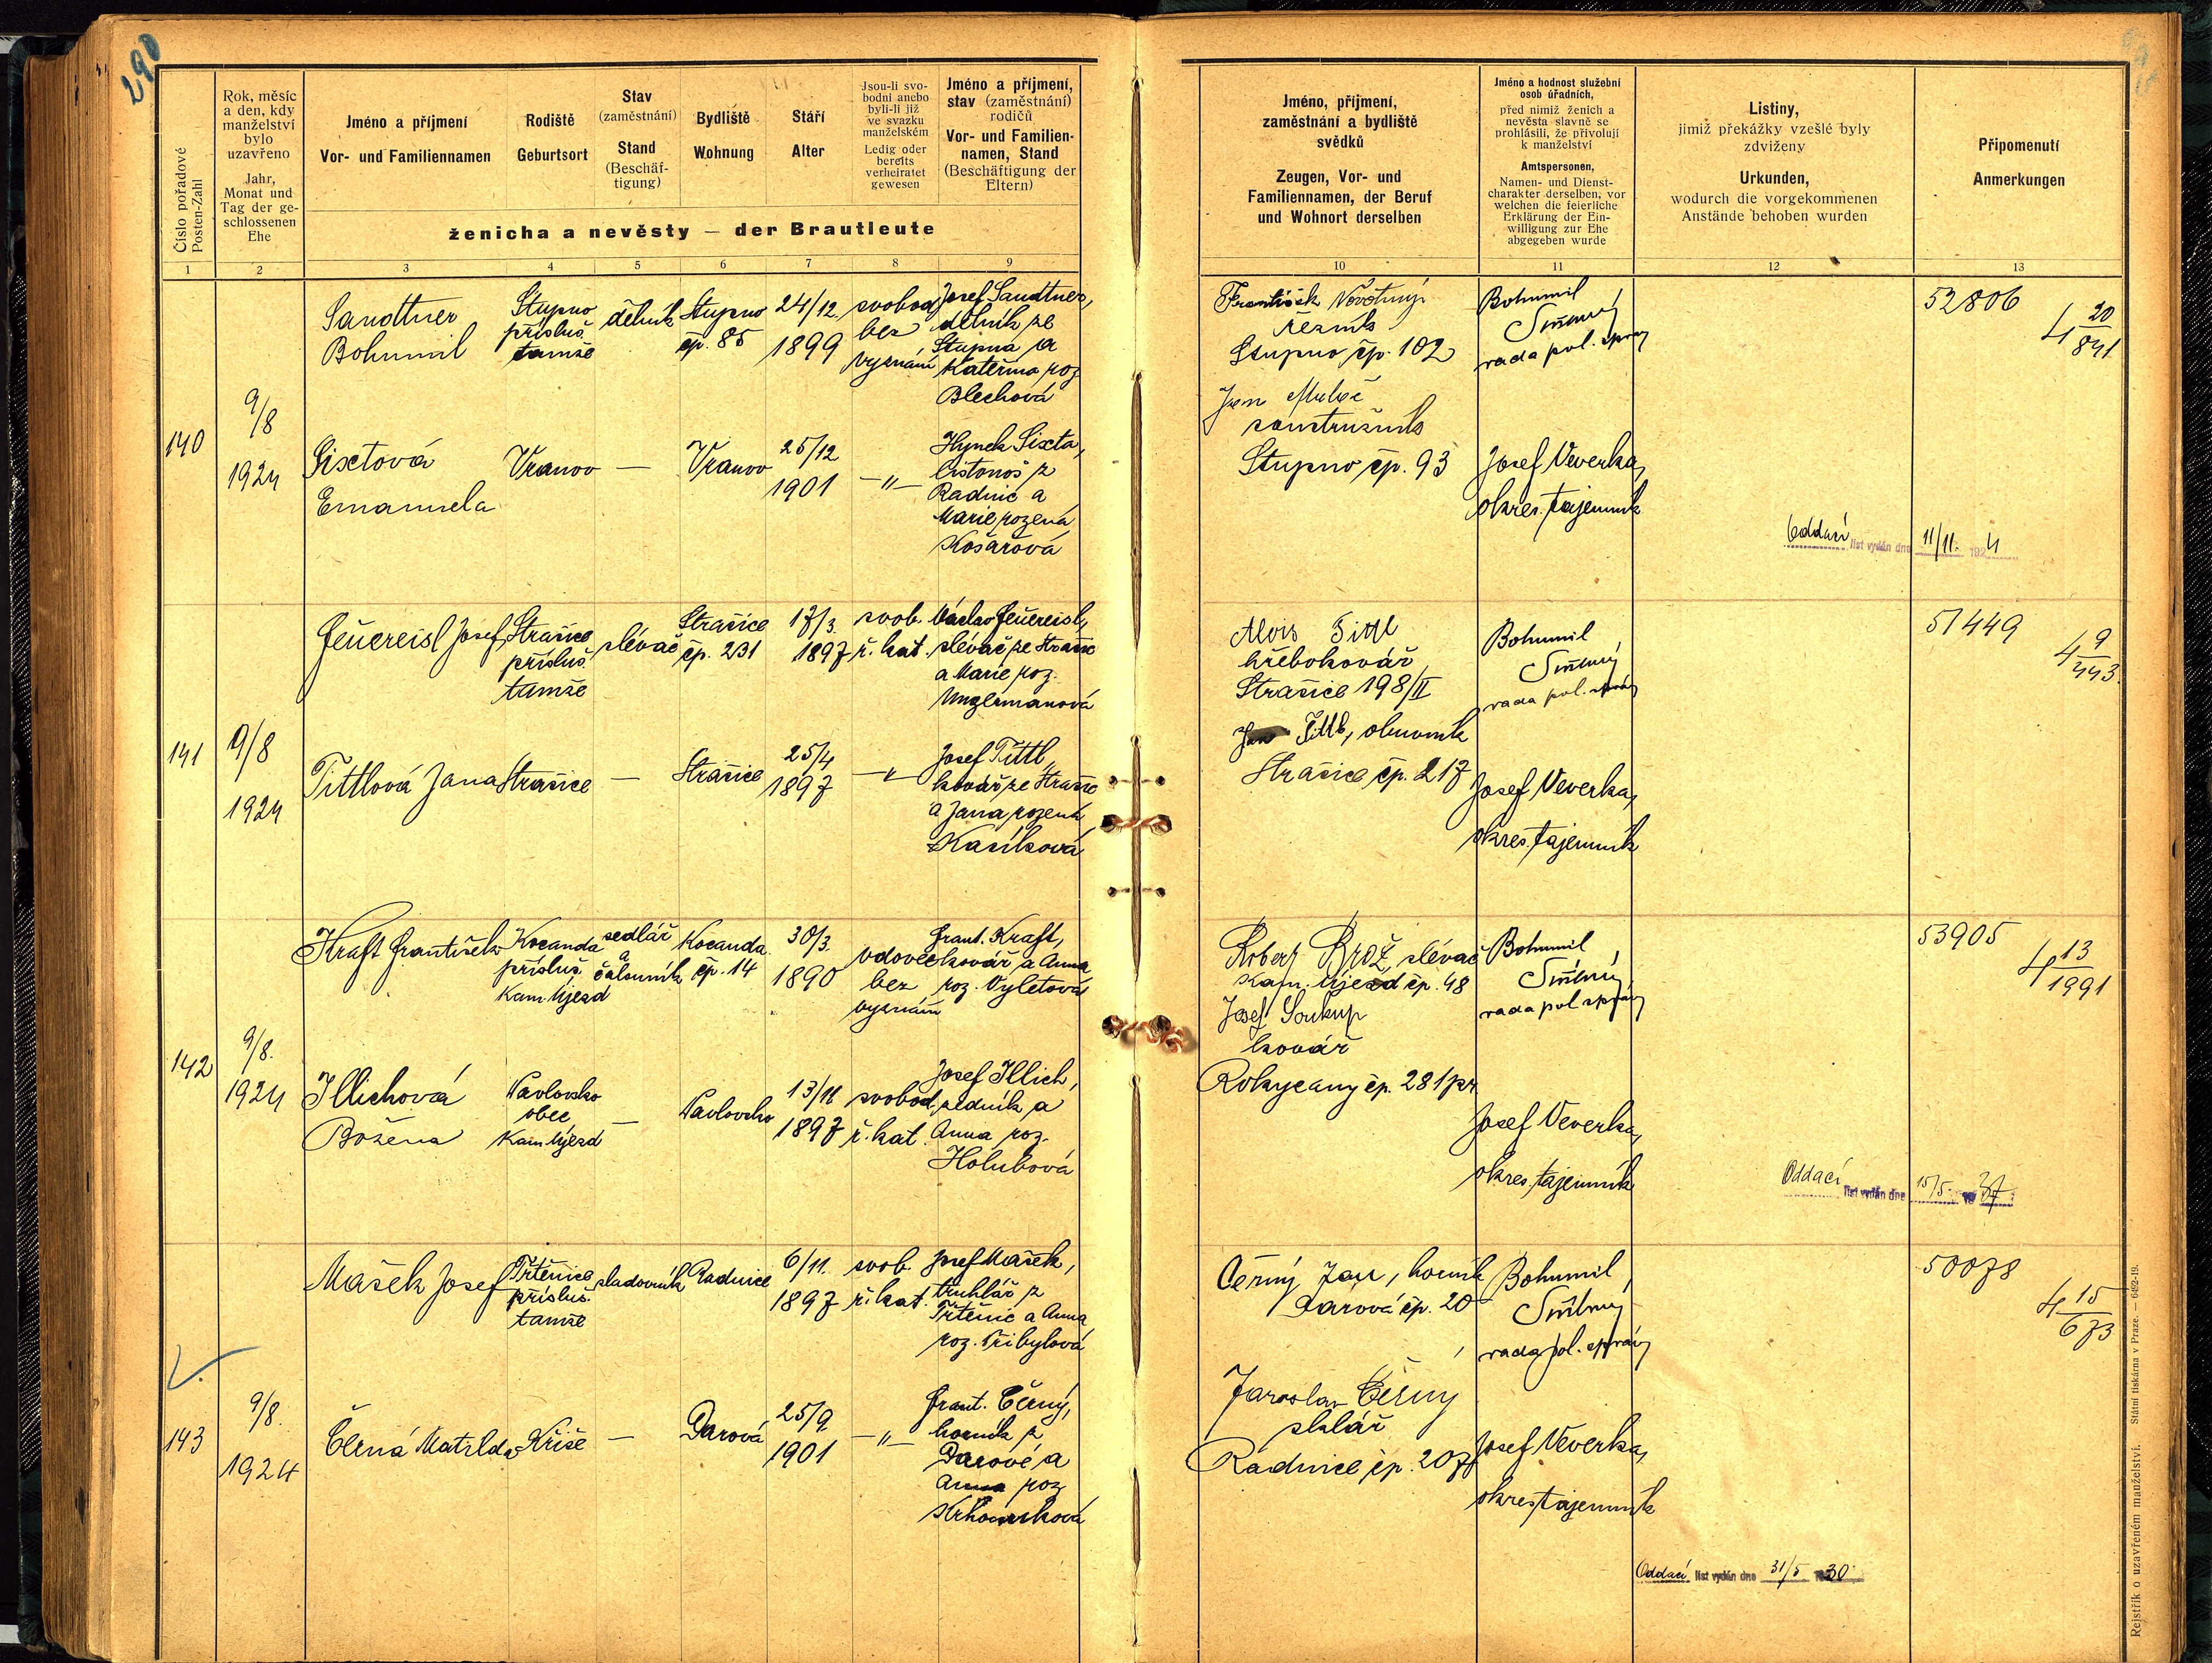 290
Číslo pořadové
Posten-Zahl
Rok, měsíc
a den, kdy
manželství
bylo
uzavřeno
Jahr,
Monat und
Tag der ge-
schlossenen
Ehe
Jméno a příjmení
Vor- und Familiennamen
Rodiště
Geburtsort
Stav
(zaměstnání)
Stand
(Beschäf-
tigung)
Bydliště
Wohnung
Stáří
Alter
Jsou-li svo-
bodni anebo
byli-li již
ve svazku
manželském
Ledig oder
bereits
verheiratet
gewesen
Jméno a příjmení,
stav (zaměstnání)
rodičů
Vor- und Familien-
namen, Stand
(Beschäftigung der
Eltern)
ženicha a nevěsty — der Brautleute
Jméno, příjmení,
zaměstnání a bydliště
svědků
Zeugen, Vor- und
Familiennamen, der Beruf
und Wohnort derselben
Jméno a hodnost služební
osob úřadních,
před nimiž ženich a
nevěsta slavně se
prohlásili, že přivolují
k manželství
Amtspersonen,
Namen- und Dienst-
charakter derselben, vor
welchen die feierliche
Erklärung der Ein-
willigung zur Ehe
abgegeben wurde
Listiny,
jimiž překážky vzešlé byly
zdviženy
Urkunden,
wodurch die vorgekommenen
Anstände behoben wurden
Připomenutí
Anmerkungen
1 2 3 4 5 6 7 8 9 10 11 12 13
140
9/8
1924
Sandtner
Bohumil
Stupno
přísluš.
tamže
dělník
Stupno
čp. 85
24/12
1899
svobod.
bez
vyznání
Josef Sandtner,
dělník ze
Stupna a
Kateřina roz
Blechová
Sixtová
Emanuela
Vranov
—
Vranov
25/12
1901
—"—
Hynek Sixta,
listonoš z
Radnic a
Marie rozená
Košařová
František Novotný
řezník
Stupno čp. 102
Jan
soustružník
Stupno čp. 93
Bohumil
rada pol. správy
Josef Veverka,
okres. tajemník
Oddací list vydán dne 11/11. 1924
52806
4 20/841
141
9/8
1924
Feuereisl Josef
Strašice
přísluš.
tamže
slévač
Strašice
čp. 231
17/3.
1897
svob.
ř. kat.
Václav Feuereisl,
slévač ze Strašic
a Marie roz.
Unzermanová
Tittlová Jana
Strašice
—
Strašice
25/4
1897
—"—
Josef Tittl,
kovář ze Strašic
a Jana rozená
Kasíková
Alois Tittl
hřebokovář
Strašice 198/II
Jan Tittl, obuvník
Strašice čp. 217
Bohumil
rada pol. správy
Josef Veverka,
okres. tajemník
51449
4 9/443
142
9/8.
1924
Kraft František
Kocanda
přísluš.
Kam. Újezd
sedlář
a
čalouník
Kocanda
čp. 14
30/3.
1890
vdovec
bez
vyznání
Frant. Kraft,
kovář a Anna
roz. Výletová
Illichová
Božena
Pavlovsko
obec
Kam. Újezd
—
Pavlovsko
13/11
1897
svobod.
ř. kat.
Josef Illich,
zedník a
Anna roz.
Holubová
Robert Brož, slévač
Kam. Újezd čp. 48
Josef Soukup
kovář
Rokycany čp. 281
Bohumil
rada pol správy
Josef Veverka,
okres. tajemník
Oddací list vydán dne 15/5. 1937
53905
4 13/1991
143
9/8.
1924
Mašek Josef
Trtěnice
přísluš.
tamže
sladovník
Radnice
6/11.
1897
svob.
ř. kat.
Josef Mašek,
truhlář z
Trtěnic a Anna
roz. Přibylová
Černá Matilda
Kříše
—
Darová
25/9
1901
—"—
Frant. Černý,
horník z
Darové a
Anna roz
Černý Jan, horník
Darová čp. 20
Jaroslav Černý
sklář
Radnice čp. 207
Bohumil
rada pol. správy
Josef Veverka,
okres. tajemník
Oddací list vydán dne 31/5 1930
50078
4 15/673
Rejstřík o uzavřeném manželství. Státní tiskárna v Praze. — 6492-19.